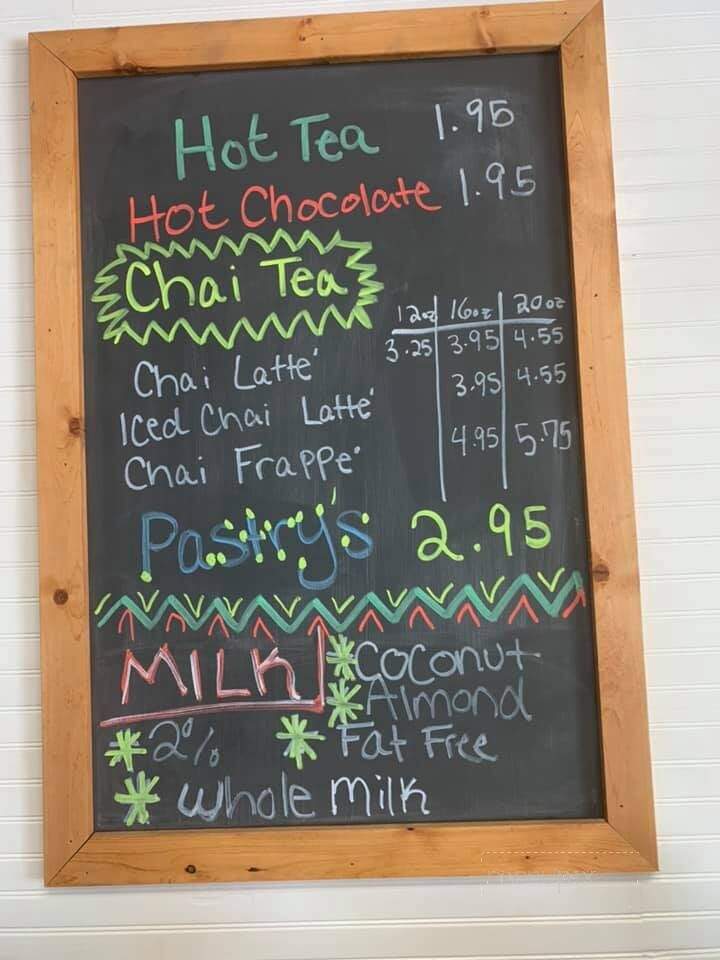 Hot Tea 1.95
Hot Chocolate 1.95
Chai Tea
12oz 16oz 20oz
3.25 3.95 4.55
Chai Latte'
3.95 4.55
Iced Chai Latte'
4.95 5.75
Chai Frappe'
Pastry's 2.95
MILK
Coconut
Almond
2% Fat Free
Whole Milk